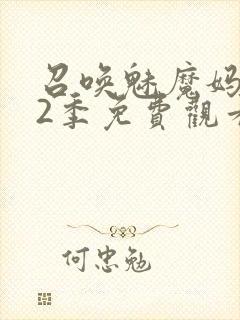 召唤魅魔妈
2季免費觀看
何忠勉